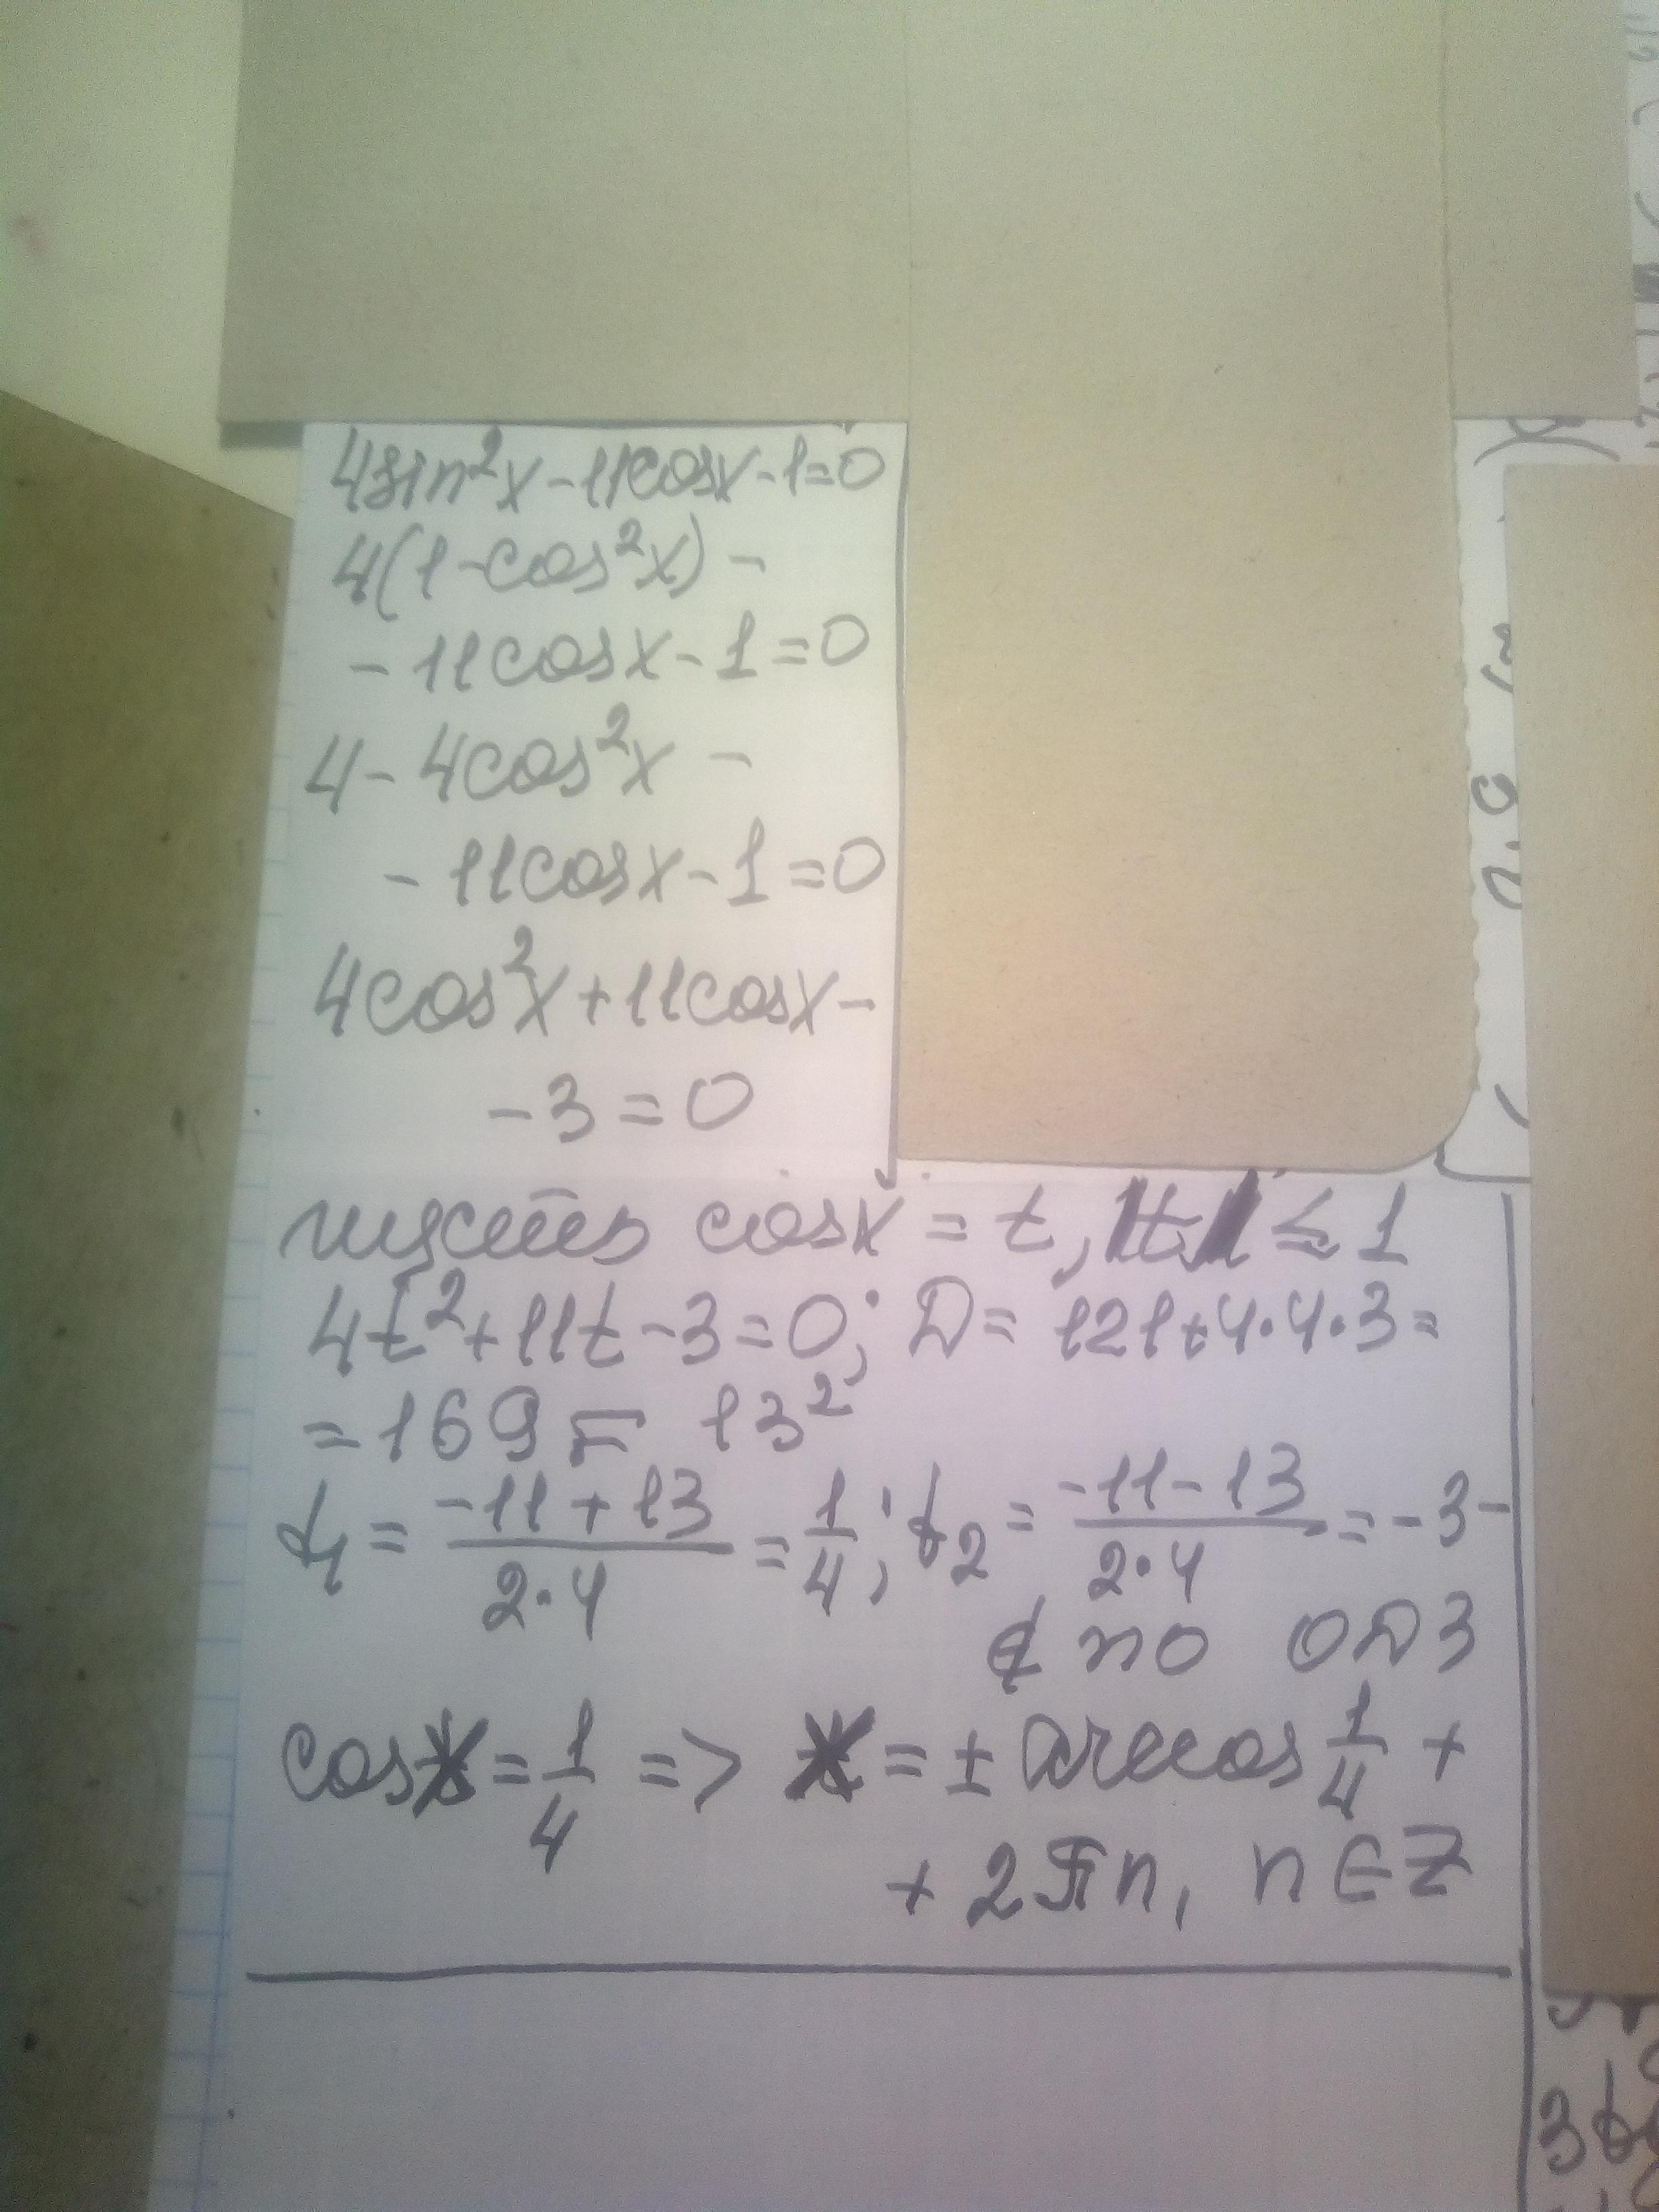 4sin²x-11cosx-1=0
4(1-cos²x)-
-11cosx-1=0
4-4cos²x-
-11cosx-1=0
4cos²x+11cosx-
-3=0
пусть cosx=t, |t|≤1
4t²+11t-3=0; D=121+4·4·3=
=169=13²
t₁=(-11+13)/(2·4)=1/4; t₂=(-11-13)/(2·4)=-3-
∉ по ОДЗ
cosx=1/4 => x=±arccos 1/4+
+2πn, n∈Z